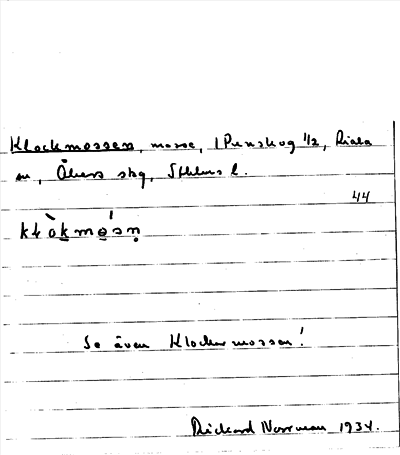 Klockmossen, mosse, 1 Penskog 1/2, Riala
sn, Åkers skg, Sthlms l.
44
So även Klockarmossen!
Rickard Norrman 1934.